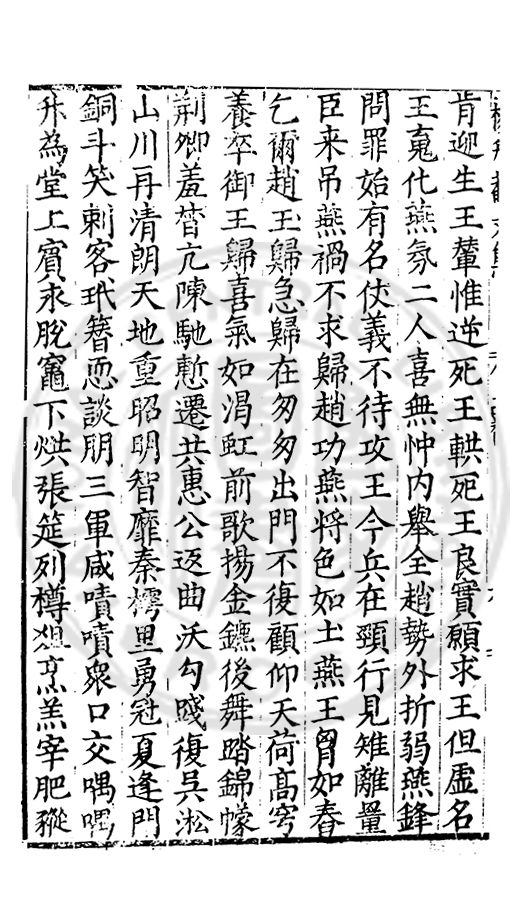 肯迎生王輦惟逆死王輁死王良實願求王但虛名
王嵬化燕氛二人喜無忡内舉全趙勢外折弱燕鋒
問罪始有名仗義不待攻王今兵在頸行見雉離罿
臣来吊燕禍不求歸趙功燕将色如土燕王胷如舂
乞爾趙王歸急歸在匆匆出門不復顧仰天荷髙穹
養卒御王歸喜氣如渴虹前歌揚金鑣後舞踏錦幪
荆卿羞瞀亢陳馳慙遷共惠公返曲沃勾踐復吳淞
山川再清朗天地重昭明智靡秦樗里勇冠夏逢門
銅斗笑刺客玳簪恧談朋三軍咸嘖嘖衆口交喁喁
升為堂上賔永脫竈下烘張筵列樽俎烹羔宰肥豵